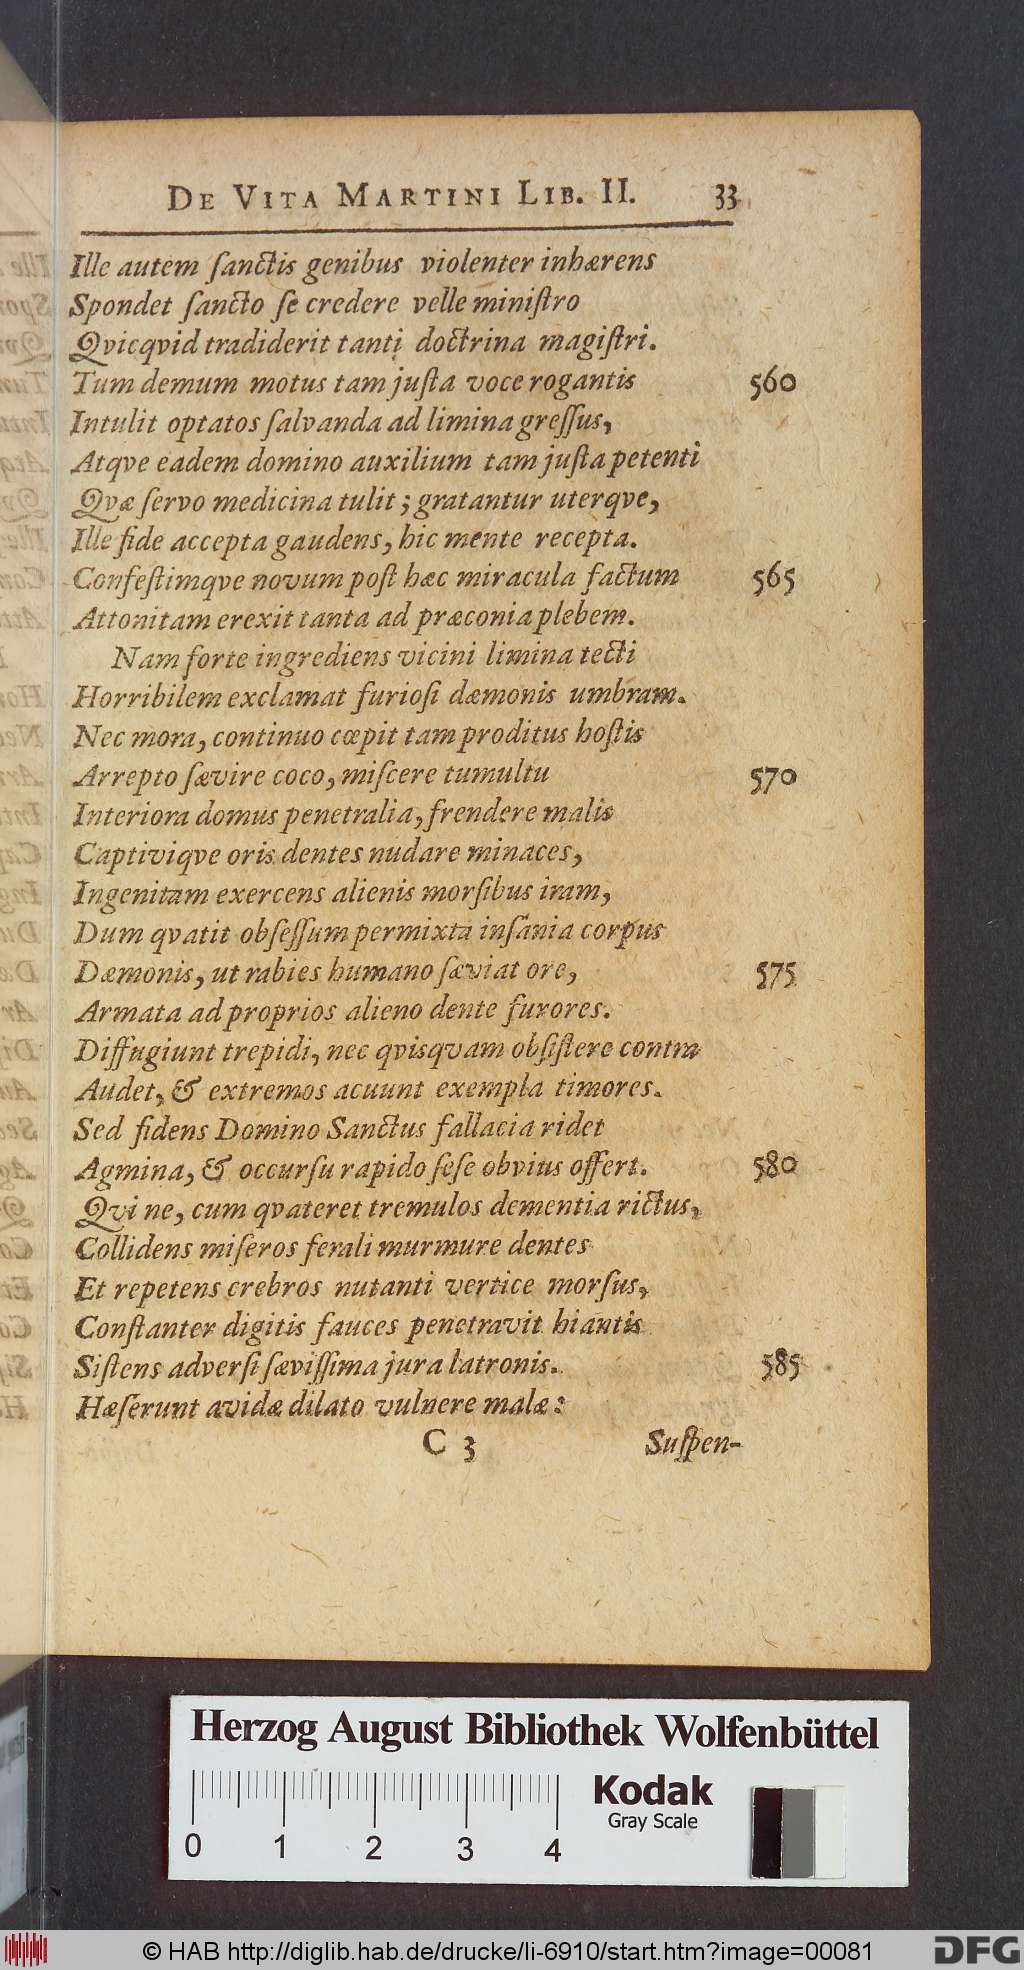 DE VITA MARTINI LIB. II. 33
Ille autem ſanctis genibus violenter inhærens
Spondet ſancto ſe credere velle miniſtro
Qvicqvid tradiderit tanti doctrina magiſtri.
Tum demum motus tam juſta voce rogantis 560
Intulit optatos ſalvanda ad limina greſſus,
Atqve eadem domino auxilium tam juſta petenti
Qvæ ſervo medicina tulit; gratantur uterqve,
Ille fide accepta gaudens, hic mente recepta.
Confeſtimqve novum poſt hæc miracula factum 565
Attonitam erexit tanta ad præconia plebem.
Nam forte ingrediens vicini limina tecti
Horribilem exclamat furioſi dæmonis umbram.
Nec mora, continuo cœpit tam proditus hoſtis
Arrepto ſævire coco, miſcere tumultu 570
Interiora domus penetralia, frendere malis
Captiviqve oris dentes nudare minaces,
Ingenitam exercens alienis morſibus iram,
Dum qvatit obſeſſum permixta inſania corpus
Dæmonis, ut rabies humano ſæviat ore, 575
Armata ad proprios alieno dente furores.
Diffugiunt trepidi, nec qvisqvam obſiſtere contra
Audet, & extremos acuunt exempla timores.
Sed fidens Domino Sanctus fallacia ridet
Agmina, & occurſu rapido ſeſe obvius offert. 580
Qvi ne, cum qvateret tremulos dementia rictus,
Collidens miſeros ferali murmure dentes
Et repetens crebros nutanti vertice morſus,
Conſtanter digitis fauces penetravit hiantis
Siſtens adverſi ſæviſſima jura latronis. 585
Hæſerunt avidæ dilato vulnere malæ:
C 3 Suſpen-
Herzog August Bibliothek Wolfenbüttel
Kodak
Gray Scale
0 1 2 3 4
© HAB http://diglib.hab.de/drucke/li-6910/start.htm?image=00081
DFG